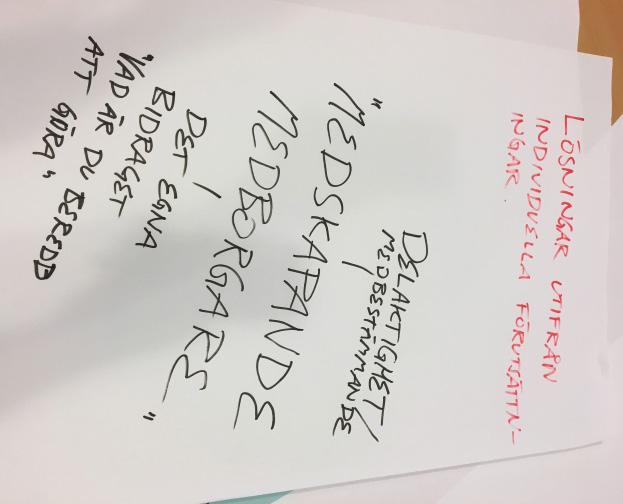 LÖSNINGAR UTIFRÅN
INDIVIDUELLA FÖRUTSÄTTN-
INGAR.
DELAKTIGHET/
MEDBESTÄMMANDE
"MEDSKAPANDE
MEDBORGARE"
DET EGNA
BIDRAGET
"VAD ÄR DU BEREDD
ATT GÖRA"